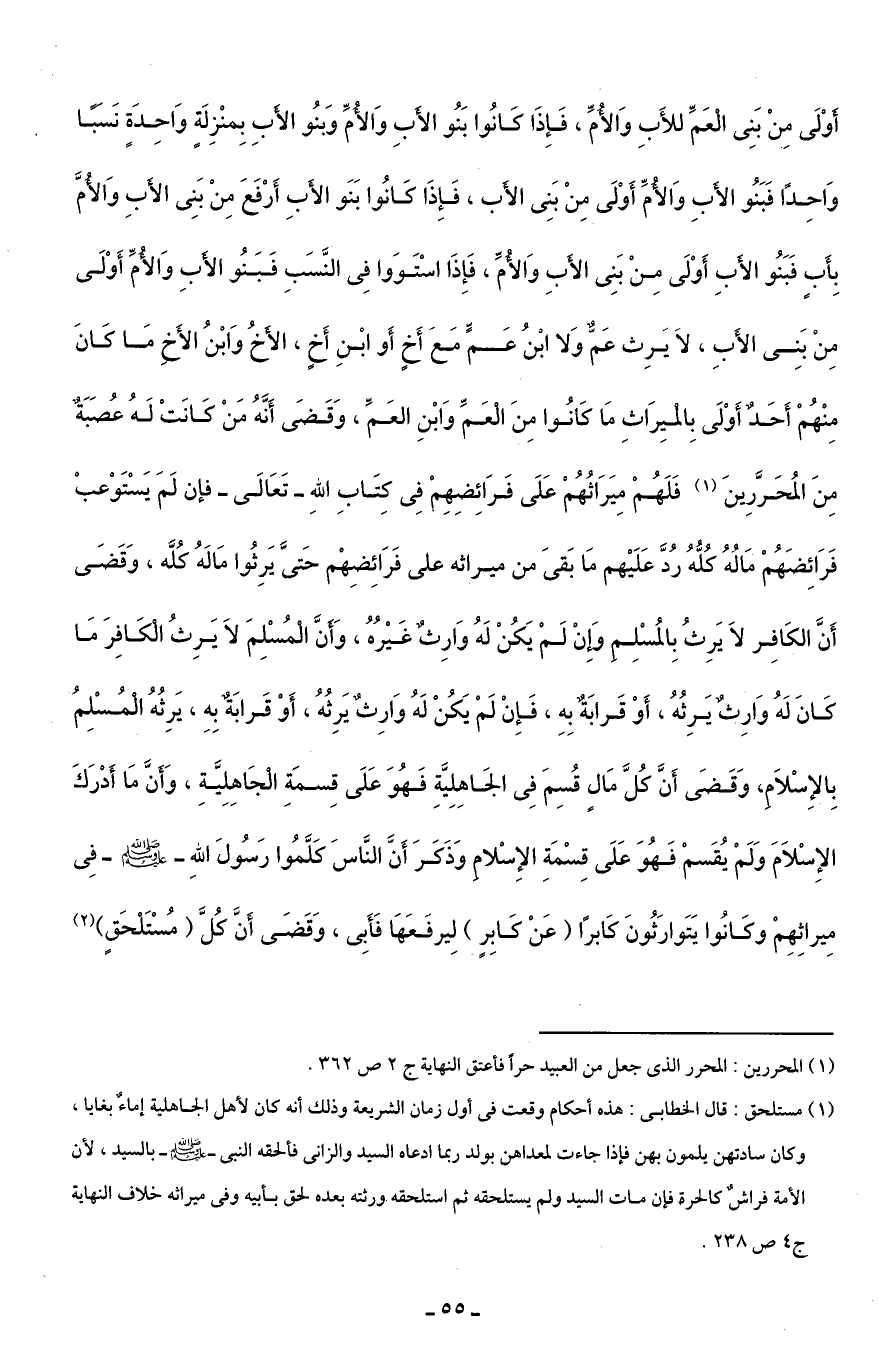 أَوْلَى مِنْ بَنِى الْعَمِّ للأَبِ وَالأُمِّ ، فَإِذَا كَانُوا بَنُو الأَبِ وَالأُمِّ وَبَنُو الأَبِ بِمنْزِلَةٍ وَاحِدَةٍ نَسَبًا
وَاحِدًا فَبَنُو الأَبِ وَالأُمِّ أَوْلَى مِنْ بَنِى الأَبِ ، فَإِذَا كَانُوا بَنَو الأَبِ أَرْفَعَ مِنْ بَنِى الأَبِ وَالأُمِّ
بِأَبٍ فَبَنُو الأَبِ أَوْلَى مِنْ بَنِى الأَبِ وَالأُمِّ ، فَإِذَا اسْتَوَوا فِى النَّسَبِ فَبَنُو الأَبِ وَالأُمِّ أَوْلَى
مِنْ بَنِى الأَبِ ، لاَ يَرِث عَمٌّ وَلا ابْنُ عَمٍّ مَعَ أَخٍ أو ابْنِ أَخٍ ، الأَخُ وَابْنُ الأَخِ مَا كَانَ
مِنْهُمْ أَحَدٌ أَوْلَى بِالْمِيرَاثِ مَا كَانُوا مِنَ الْعَمِّ وَابْنِ العَمِّ ، وَقَضَى أَنَّهُ مَنْ كَانَتْ لَهُ عُصَبَةٌ
مِنَ المُحَرَّرِينَ (١) فَلَهُمْ مِيَرَاثُهُمْ عَلَى فَرَائِضِهِمْ فِى كِتَابِ اللهِ ـ تَعَالَى ـ فإن لَمْ يَسْتَوْعِبْ
فَرَائِضَهُمْ مَالُهُ كُلُّهُ رُدَّ عَلَيْهِم مَا بَقىَ من مِيراثه على فَرَائِضِهْم حَتىَّ يَرِثُوا مَالَهُ كُلَّه ، وَقَضَى
أَنَّ الكَافِر لاَ يَرِثُ بِالمُسْلِمِ وَإِنْ لَمْ يَكُنْ لَهُ وَارِثٌ غَيْرُهُ ، وَأَنَّ الْمُسْلِمَ لاَ يَرِثُ الْكَافِرَ مَا
كَانَ لَهُ وَارِثٌ يَرِثُهُ ، أَوْ قَرابَةٌ بِهِ ، فَإِنْ لَمْ يَكُنْ لَهُ وَارِثٌ يَرِثُهُ ، أَوْ قَرابَةٌ بِهِ ، يَرِثُهُ الْمُسْلِمُ
بِالإِسْلاَمِ، وَقَضَى أَنَّ كُلَّ مَالٍ قُسِمَ فِى الجَاهِلِيَّةِ فَهُوَ عَلَى قِسمَةِ الْجَاهِلِيَّةِ ، وَأَنَّ مَا أَدْرَكَ
الإِسْلاَمَ وَلَمْ يُقَسمْ فَهُوَ عَلَى قِسْمَةِ الإِسْلامِ وَذَكَرَ أَنَّ النَّاسَ كَلَّمُوا رَسُولَ اللهِ ـ ﷺ ـ فِى
مِيراثِهِمْ وكَانُوا يَتَوارَثُونَ كَابرًا ( عَنْ كَابِرٍ ) لِيرفَعَهَا فَأَبِى ، وَقَضَى أَنَّ كُلَّ ( مُسْتَلْحَقٍ)(٢)
(١) المحررين : المحرر الذى جعل من العبيد حراً فأعتق النهاية ج ٢ ص ٣٦٢ .
(١) مستلحق : قال الخطابى : هذه أحكام وقعت فى أول زمان الشريعة وذلك أنه كان لأهل الجاهلية إماءٌ بغايا ،
وكان سادتهن يلمون بهن فإذا جاءت لمعداهن بولد ربما ادعاه السيد والزانى فألحقه النبى ـ ﷺ ـ بالسيد ، لأن
الأمة فراشٌ كالحرة فإن مات السيد ولم يستلحقه ثم استلحقه ورثته بعده لحق بأبيه وفى ميراثه خلاف النهاية
ج٤ ص ٢٣٨ .
ـ ٥٥ ـ